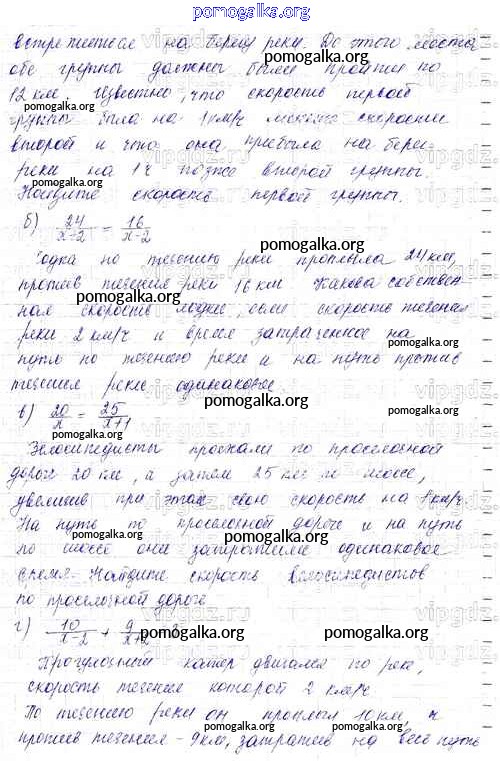 pomogalka.org
встретиться на берегу реки. До этого места
обе группы должны были пройти по
12 км. Известно, что скорость первой
группы была на 1 км/ч меньше скорости
второй и что она прибыла на берег
реки на 1 ч позже второй группы.
Найдите скорость первой группы.
б) 24/x+2 = 16/x-2
Лодка по течению реки проплыла 24 км,
против течения реки 16 км. Какова собствен-
ная скорость лодки, если скорость течения
реки 2 км/ч и время затраченное на
путь по течению реки и на путь против
течения реки одинаковое.
в) 20/x = 25/x+1
Велосипедисты проехали по проселочной
дороге 20 км, а затем 25 км по шоссе,
увеличив при этом свою скорость на 1 км/ч.
На путь по проселочной дороге и на путь
по шоссе они затратили одинаковое
время. Найдите скорость велосипедистов
по проселочной дороге
г) 10/x-2 + 9/x+2
Прогулочный катер двигался по реке,
скорость течения которой 2 км/ч
По течению реки он проплыл 10 км, а
против течения - 9 км, затратив на весь путь